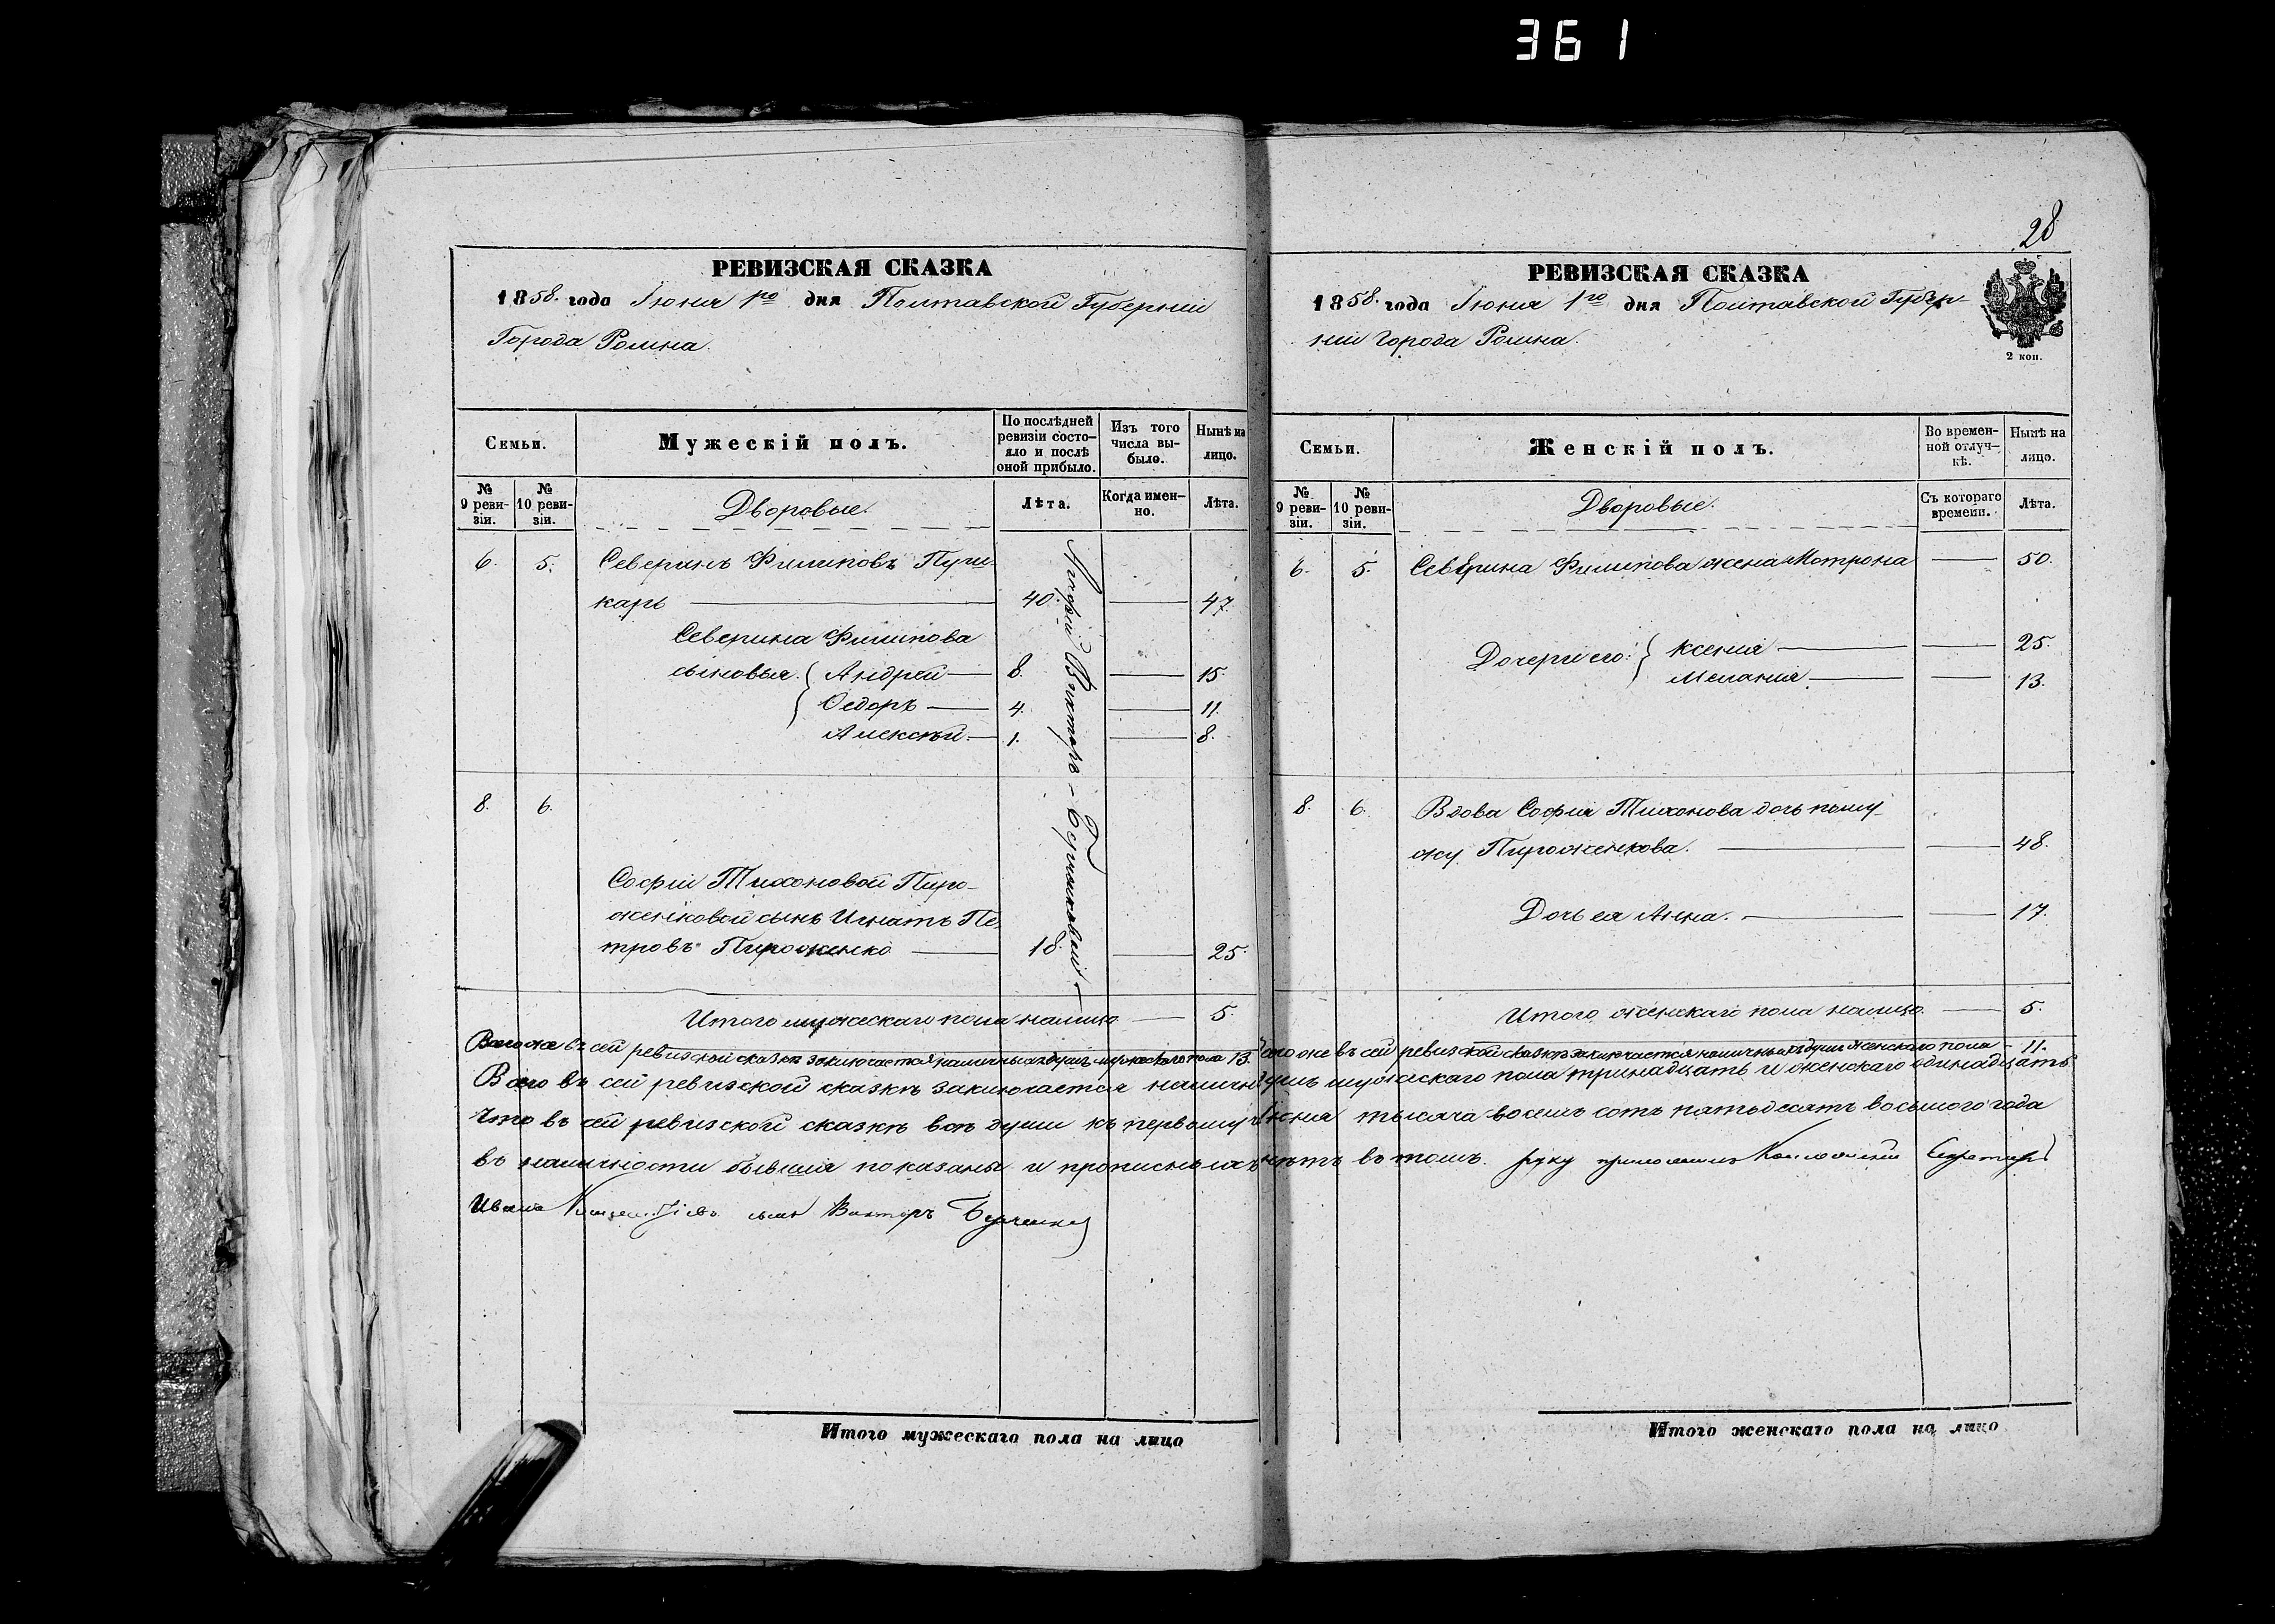 361
28
РЕВИЗСКАЯ СКАЗКА
1858. года Іюня 1го дня Полтавской Губерніи
Города Ромна.
Семьи.
Мужескій полъ.
По послѣдней ревизіи состо-
яло и послѣ
оной прибыло.
Изъ того
числа вы-
было.
Нынѣ на
лицо.
№
9 реви-
зіи.
№
10 реви-
зіи.
Дворовые.
Лѣта.
Когда имен-
но.
Лѣта.
6. 5. Северинъ Филиповъ Пуш-
карь 40. 47.
Северина Филипова
сыновья. Андрей 8. 15.
Ѳедоръ 4. 11.
Алексѣй. 1. 8.
8. 6.
Софіи Тихоновой Пиро-
женковой сынъ Игнатъ Пе-
тровъ Пироженко 18. 25.
Викторъ
Итого мужескаго пола налицо 5.
РЕВИЗСКАЯ СКАЗКА
1858. года Іюня 1го дня Полтавской Губер-
ніи Города Ромна.
2 коп.
Семьи.
Женскій полъ.
Во времен-
ной отлуч-
кѣ.
Нынѣ на
лицо.
№
9 реви-
зіи.
№
10 реви-
зіи.
Дворовые.
Съ котораго
времени.
Лѣта.
6. 5. Северина Филипова жена Мотрона 50.
Дочери его: Ксенія 25.
Меланія 13.
8. 6. Вдова Софія Тихонова дочь по му-
жу Пироженкова. 48.
Дочь ея Анна. 17.
Итого женскаго пола налицо 5.
Всего же въ сей ревизской сказкѣ заключается наличныхъ душъ мужескаго пола 13. Всего же въ сей ревизской сказкѣ заключается наличныхъ душъ женскаго пола - 11.
Всего въ сей ревизской сказкѣ заключается налично душъ мужескаго пола тринадцать и женскаго одинадцать
Что въ сей ревизской сказкѣ всѣ души къ первому Іюня тысяча восемь сотъ пятьдесятъ восьмого года
въ наличности бывшія показаны и прописныхъ нѣтъ въ томъ. руку приложилъ Коллежскій Секретарь
Ивана сынъ Викторъ
Итого мужескаго пола на лицо
Итого женскаго пола на лицо